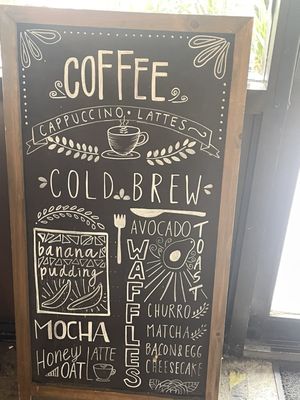 COFFEE
CAPPUCCINO • LATTES
COLD BREW
banana
pudding
MOCHA
Honey
OAT
LATTE
WAFFLES
AVOCADO
TOAST
CHURRO
MATCHA
BACON & EGG
CHEESECAKE